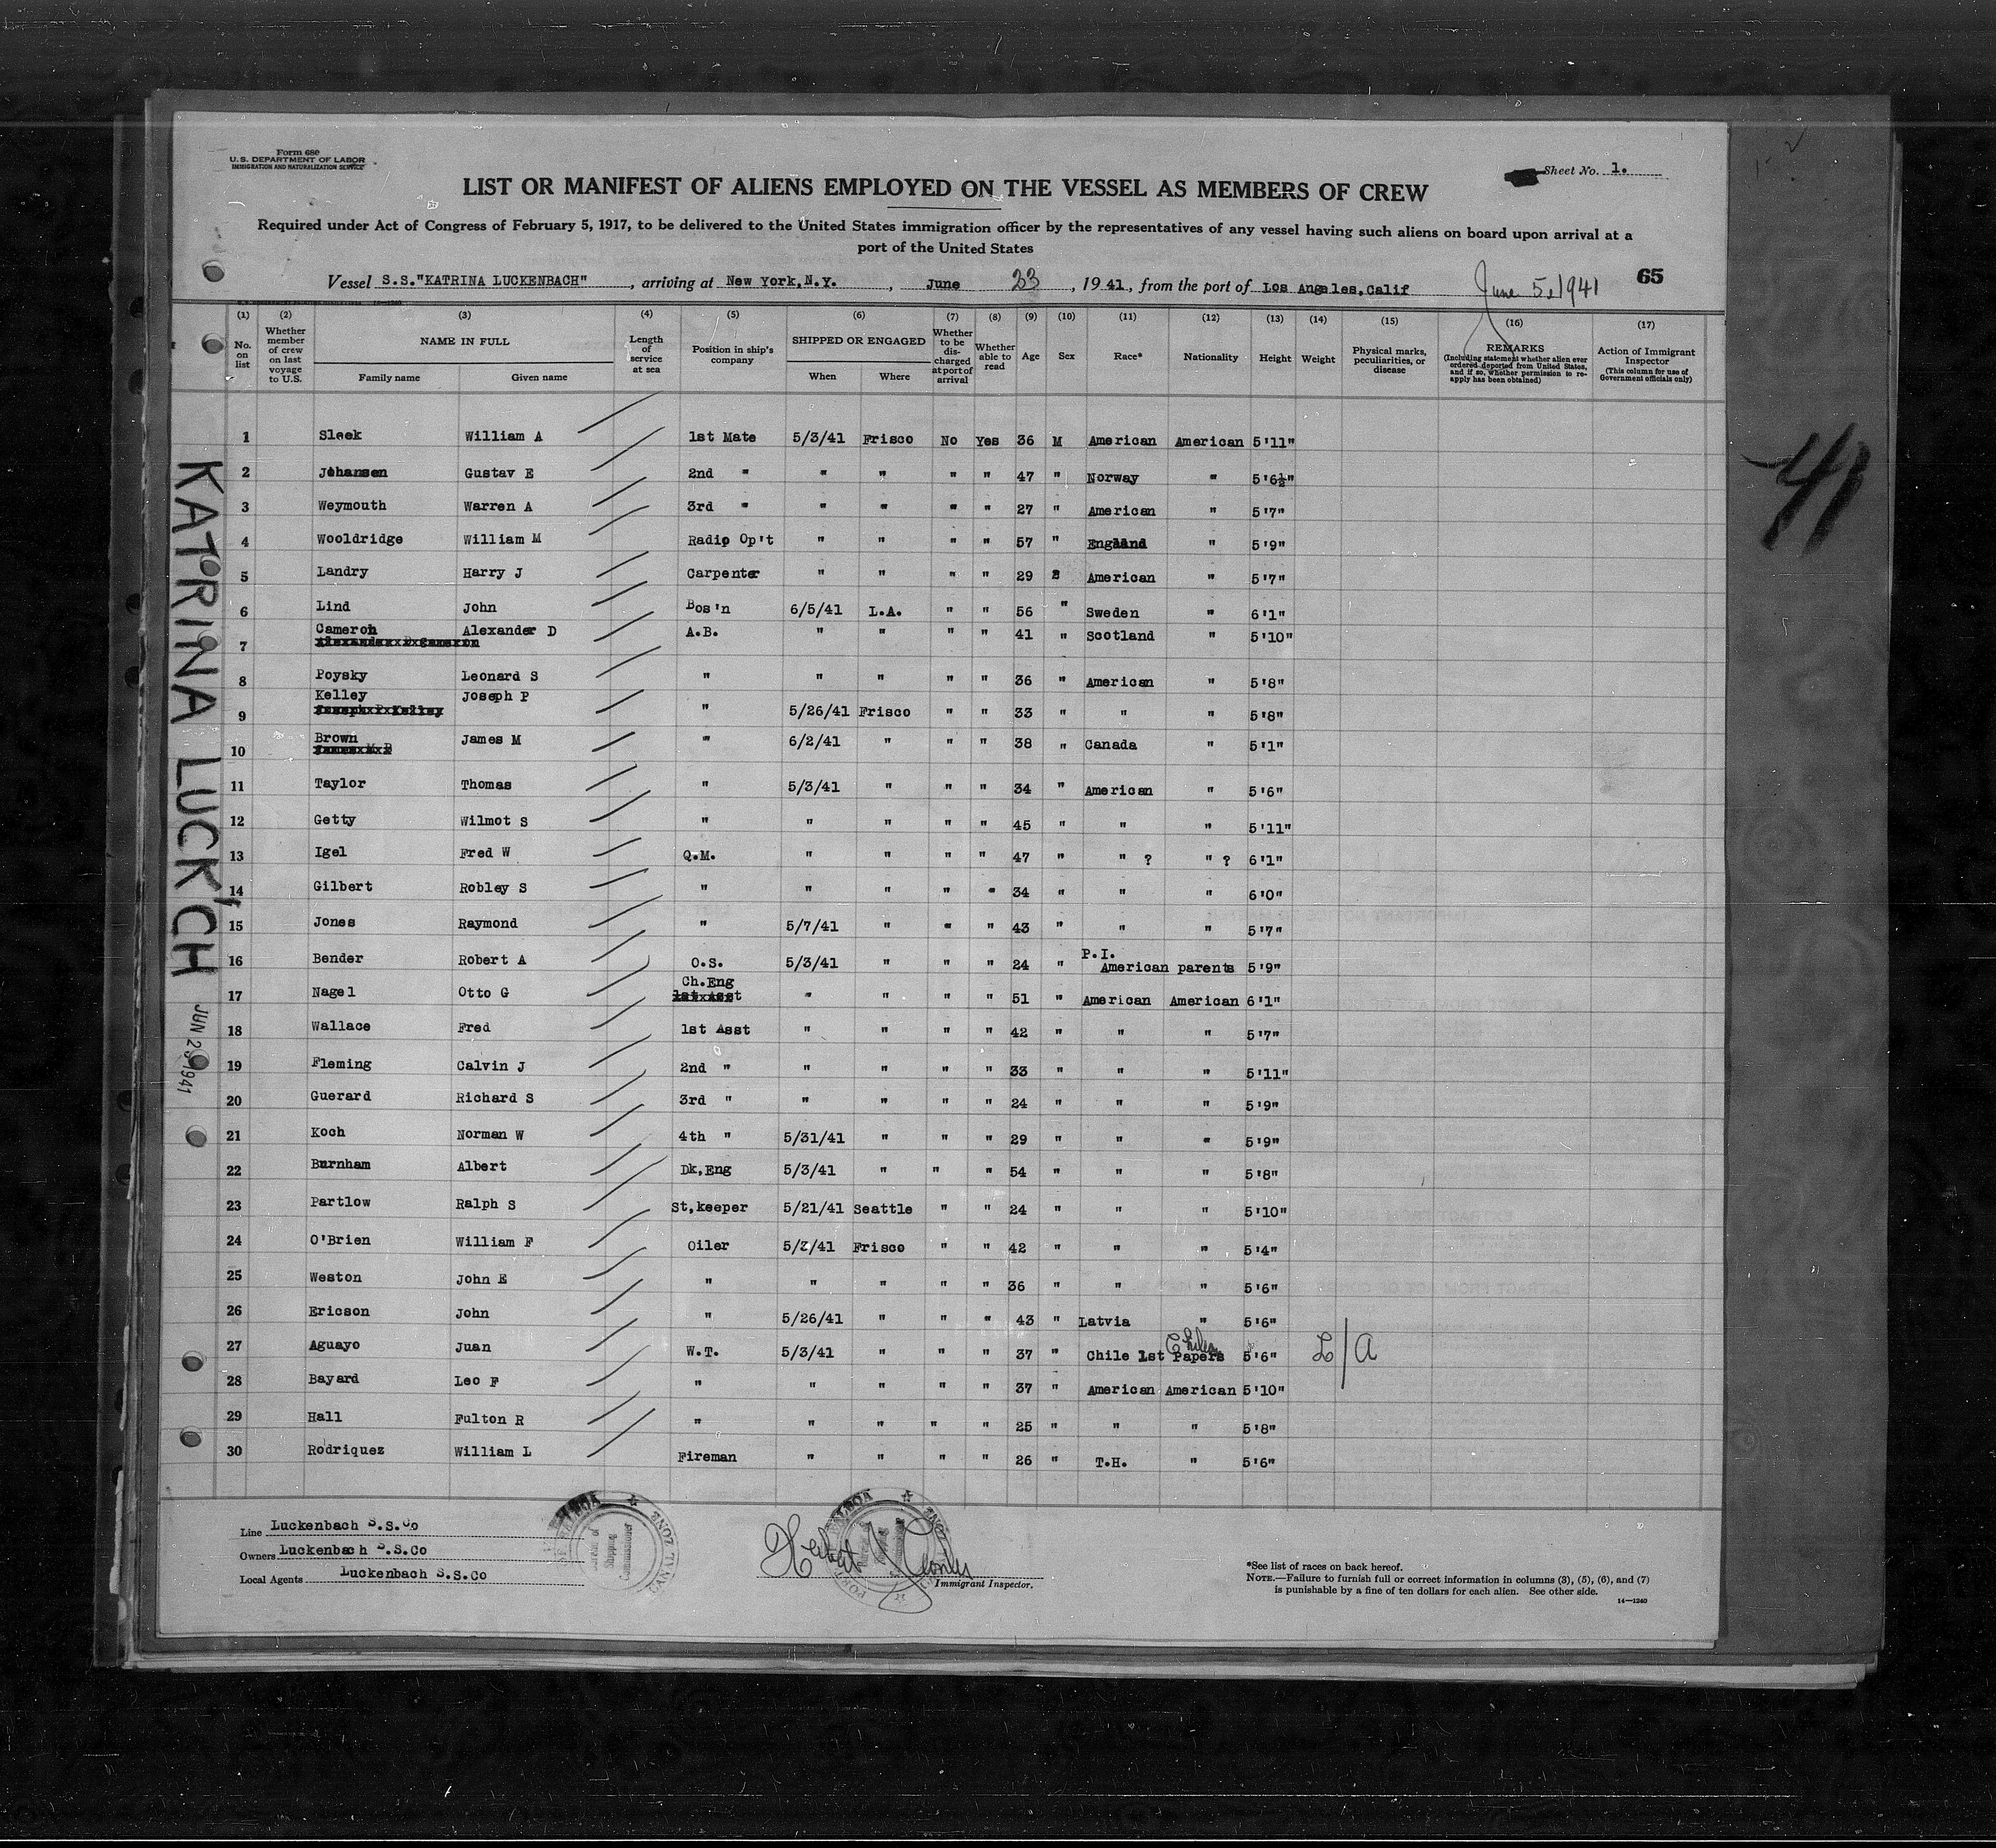 Form 680
U.S. DEPARTMENT OF LABOR
IMMIGRATION AND NATURALIZATION SERVICE
Sheet No. 1.
LIST OR MANIFEST OF ALIENS EMPLOYED ON THE VESSEL AS MEMBERS OF CREW
Required under Act of Congress of February 5, 1917, to be delivered to the United States immigration officer by the representatives of any vessel having such aliens on board upon arrival at a
port of the United States
Vessel S.S."KATRINA LUCKENBACH", arriving at New York,N.Y., June 23, 1941, from the port of Los Angeles,Calif June 5,1941
65
(1) No. on list (2) Whether member of crew on last voyage to U.S. (3) NAME IN FULL Family name Given name (4) Length of service at sea (5) Position in ship's company (6) SHIPPED OR ENGAGED When Where (7) Whether to be discharged at port of arrival (8) Whether able to read (9) Age (10) Sex (11) Race* (12) Nationality (13) Height (14) Weight (15) Physical marks, peculiarities, or disease (16) REMARKS (Including statement whether alien ever ordered deported from United States, and if so, whether permission to re-apply has been obtained) (17) Action of Immigrant Inspector (This column for use of Government officials only)
1 Sleek William A 1st Mate 5/3/41 Frisco No Yes 36 M American American 5'11"
2 Johansen Gustav E 2nd " " " " " 47 " Norway " 5'6½"
3 Weymouth Warren A 3rd " " " " " 27 " American " 5'7"
4 Wooldridge William M Radio Op't " " " " 57 " England " 5'9"
5 Landry Harry J Carpenter " " " " 29 American " 5'7"
6 Lind John Bos'n 6/5/41 L.A. " " 56 " Sweden " 6'1"
7 Cameron Alexander D A.B. " " " " 41 " Scotland " 5'10"
8 Poysky Leonard S " " " " " 36 " American " 5'8"
9 Kelley Joseph P " 5/26/41 Frisco " " 33 " " " 5'8"
10 Brown James M " 6/2/41 " " " 38 " Canada " 5'1"
11 Taylor Thomas " 5/3/41 " " " 34 " American " 5'6"
12 Getty Wilmot S " " " " " 45 " " " 5'11"
13 Igel Fred W Q.M. " " " " 47 " " ? " ? 6'1"
14 Gilbert Robley S " " " " " 34 " " " 6'0"
15 Jones Raymond " 5/7/41 " " " 43 " " " 5'7"
16 Bender Robert A O.S. 5/3/41 " " " 24 " P.I. American parents 5'9"
17 Nagel Otto G Ch.Eng " " " " 51 " American American 6'1"
18 Wallace Fred 1st Asst " " " " 42 " " " 5'7"
19 Fleming Calvin J 2nd " " " " " 33 " " " 5'11"
20 Guerard Richard S 3rd " " " " " 24 " " " 5'9"
21 Koch Norman W 4th " 5/31/41 " " " 29 " " " 5'9"
22 Burnham Albert Dk,Eng 5/3/41 " " " 54 " " " 5'8"
23 Partlow Ralph S St,keeper 5/21/41 Seattle " " 24 " " " 5'10"
24 O'Brien William F Oiler 5/3/41 Frisco " " 42 " " " 5'4"
25 Weston John E " " " " " 36 " " " 5'6"
26 Ericson John " 5/26/41 " " " 43 " Latvia " 5'6"
27 Aguayo Juan W.T. 5/3/41 " " " 37 " Chile 1st Papers Chilean 5'6" L/A
28 Bayard Leo F " " " " " 37 " American American 5'10"
29 Hall Fulton R " " " " " 25 " " " 5'8"
30 Rodriquez William L Fireman " " " " 26 " T.H. " 5'6"
KATRINA LUCK'CH
JUN 23 1941
41
Line Luckenbach S.S.Co
Owners Luckenbach S.S.Co
Local Agents Luckenbach S.S.Co
BALBOA CANAL ZONE Shipping Commissioner
Immigrant Inspector.
*See list of races on back hereof.
NOTE.—Failure to furnish full or correct information in columns (3), (5), (6), and (7)
is punishable by a fine of ten dollars for each alien. See other side.
14—1240